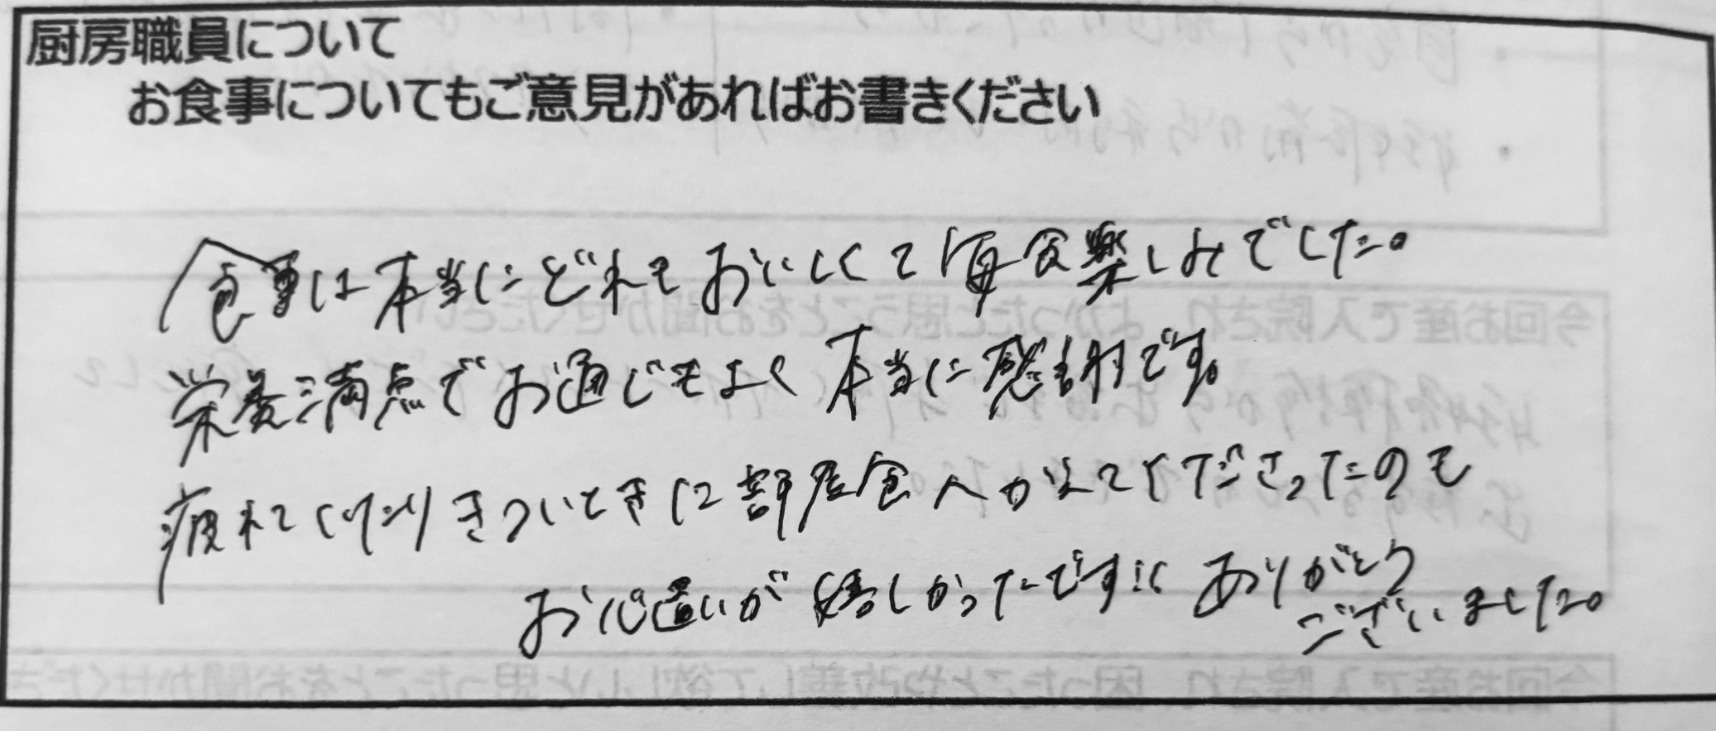 厨房職員について
お食事についてもご意見があればお書きください
食事は本当にどれもおいしくて毎食楽しみでした。
栄養満点でお通じもよく本当に感謝です。
疲れてくたりきついときに部屋食へかえてくださったのも
お心遣いが嬉しかったです!! ありがとう
ございました。